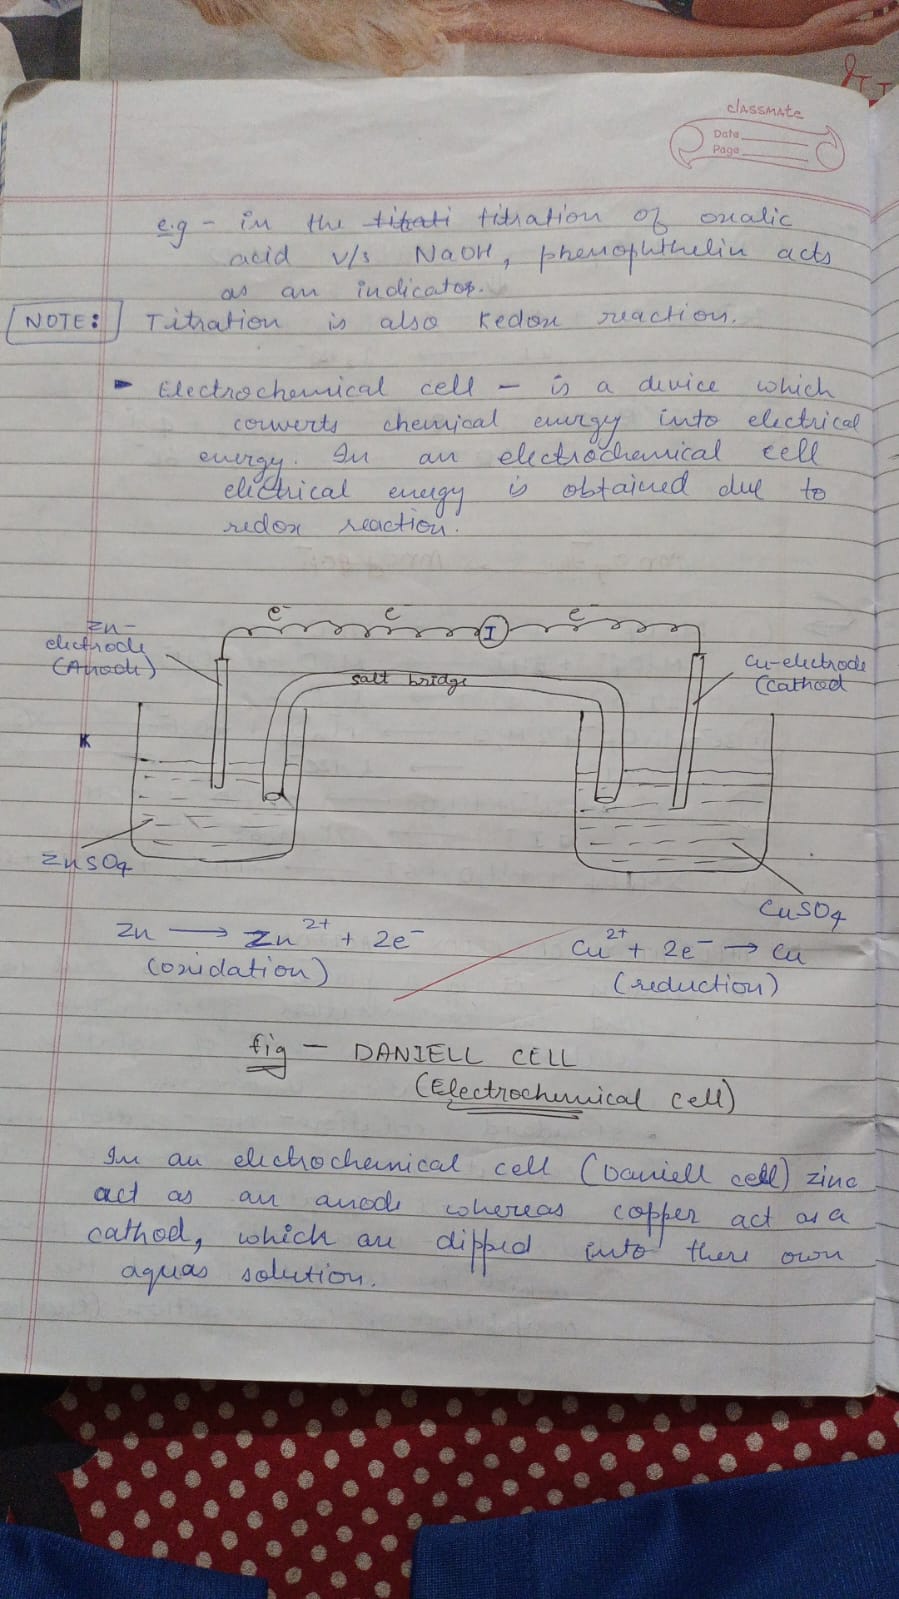 classmate
Date
Page
e.g - in the titrati titration of oxalic
acid v/s NaOH, phenophthelin acts
as an indicator.
NOTE: Titration is also Redox reaction.
Electrochemical cell - is a device which
converts chemical energy into electrical
energy. In an electrochemical cell
electrical energy is obtained due to
redox reaction.
e⁻ e⁻ e⁻
I
Zn-
electrode
(Anode)
salt bridge
Cu-electrode
(Cathod
K
ZnSO4
CuSO4
Zn → Zn²⁺ + 2e⁻
(oxidation)
Cu²⁺ + 2e⁻ → Cu
(reduction)
fig - DANIELL CELL
(Electrochemical cell)
In an electrochemical cell (Daniell cell) zinc
act as an anode whereas copper act as a
cathod, which are dipped into there own
aquas solution.